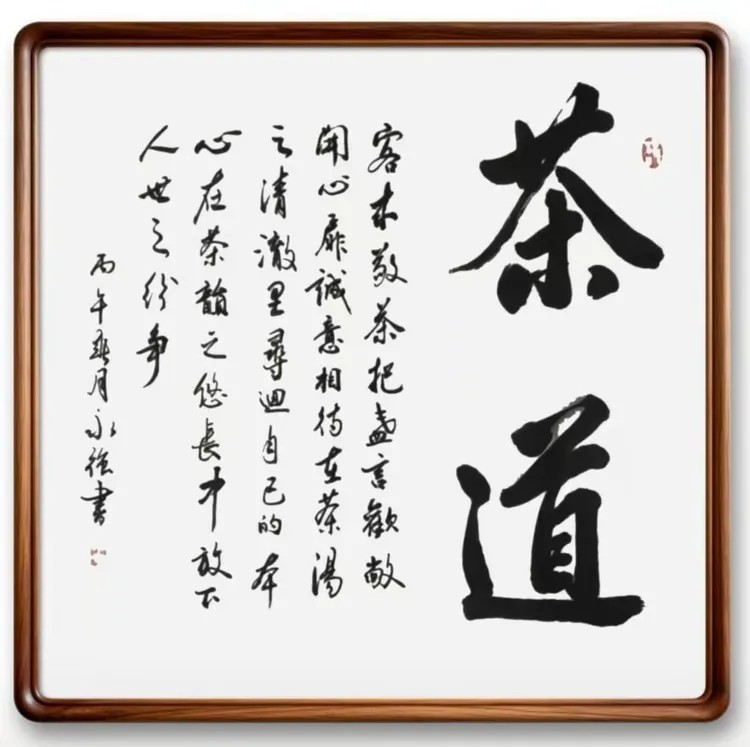 茶道
客来敬茶把盏言歡敞
開心扉誠意相待在茶湯
之清澈里尋迴自己的本
心在茶韻之悠長中放下
人世之纷争
丙午月永强書